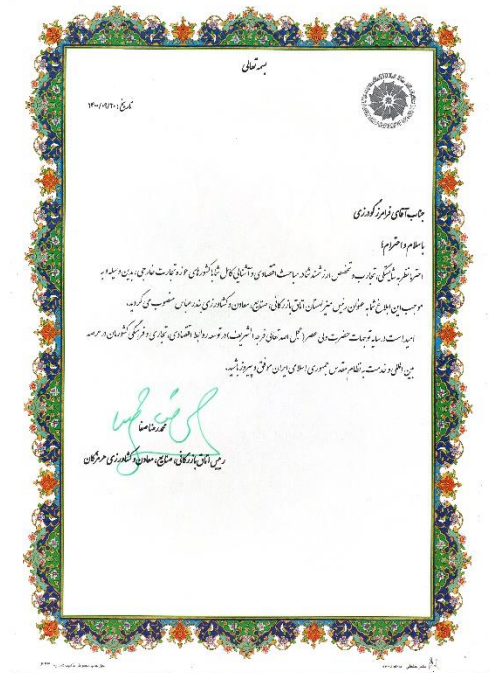 بسمه تعالی
تاریخ: ۱۴۰۰/۰۹/۲۰
جناب آقای فرامرز گودرزی
با سلام و احترام؛
احتراما نظر به شایستگی، تجارب و تخصص ارزشمند شما در مباحث اقتصادی و آشنایی کامل شما با کشورهای حوزه تجارت خارجی، بدین وسیله به
موجب این ابلاغ شما به عنوان رئیس میز لهستان اتاق بازرگانی، صنایع، معادن و کشاورزی بندرعباس منصوب می گردید.
امید است در سایه توجهات حضرت ولی عصر (عجل الله تعالی فرجه الشریف) در توسعه روابط اقتصادی، تجاری و فرهنگی کشورمان در عرصه
بین المللی و خدمت به نظام مقدس جمهوری اسلامی ایران موفق و پیروز باشید.
محمدرضا صفا
رئیس اتاق بازرگانی، صنایع، معادن و کشاورزی هرمزگان